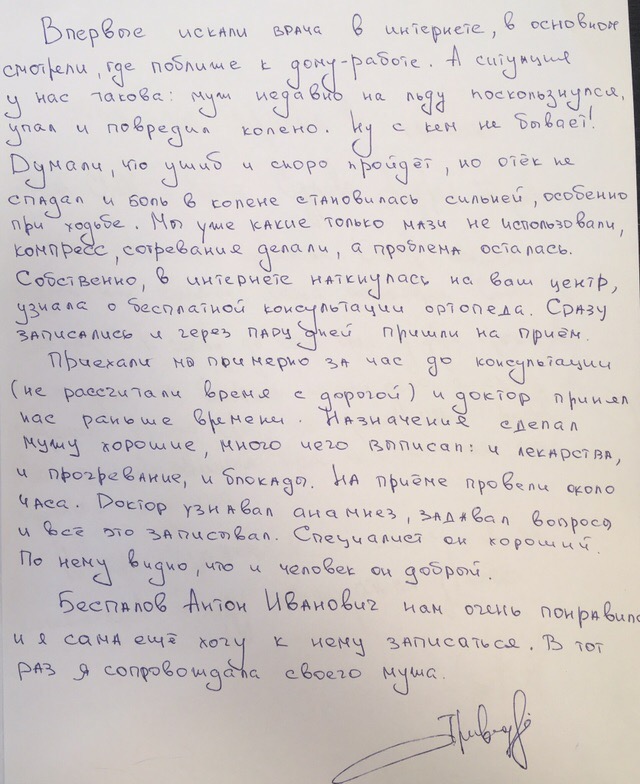 Впервые искали врача в интернете, в основном
смотрели, где поближе к дому-работе. А ситуация
у нас такова: муж недавно на льду поскользнулся,
упал и повредил колено. Ну с кем не бывает!
Думали, что ушиб и скоро пройдёт, но отёк не
спадал и боль в колене становилась сильней, особенно
при ходьбе. Мы уже какие только мази не использовали,
компресс, согревания делали, а проблема осталась.
Собственно, в интернете наткнулась на ваш центр,
узнала о бесплатной консультации ортопеда. Сразу
записались и через пару дней пришли на приём.
Приехали мы примерно за час до консультации
(не рассчитали время с дорогой) и доктор принял
нас раньше времени. Назначения сделал
мужу хорошие, много чего выписал: и лекарства,
и прогревание, и блокады. На приёме провели около
часа. Доктор узнавал анамнез, задавал вопросы
и всё это записывал. Специалист он хороший.
По нему видно, что и человек он добрый.
Беспалов Антон Иванович нам очень понравился
и я сама ещё хочу к нему записаться. В тот
раз я сопровождала своего мужа.